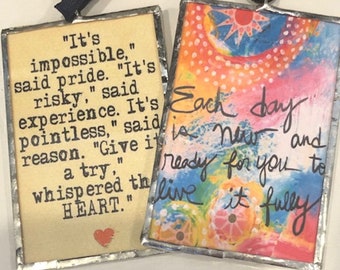 "It's
impossible,"
said pride. "It's
risky," said
experience. It's
pointless," said
reason. "Give it
a try,"
whispered the
HEART."
Each day
is new and
ready for you to
live it fully